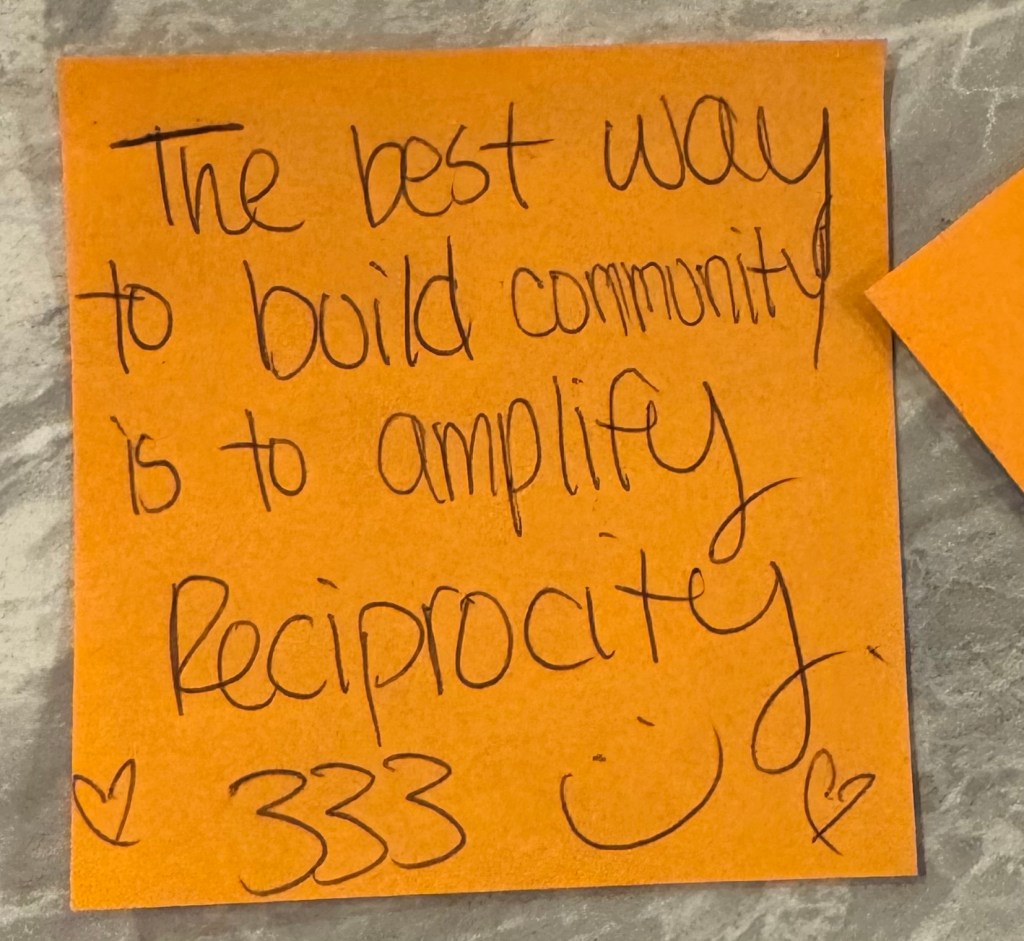 The best way
to build community
is to amplify
Reciprocity.
333